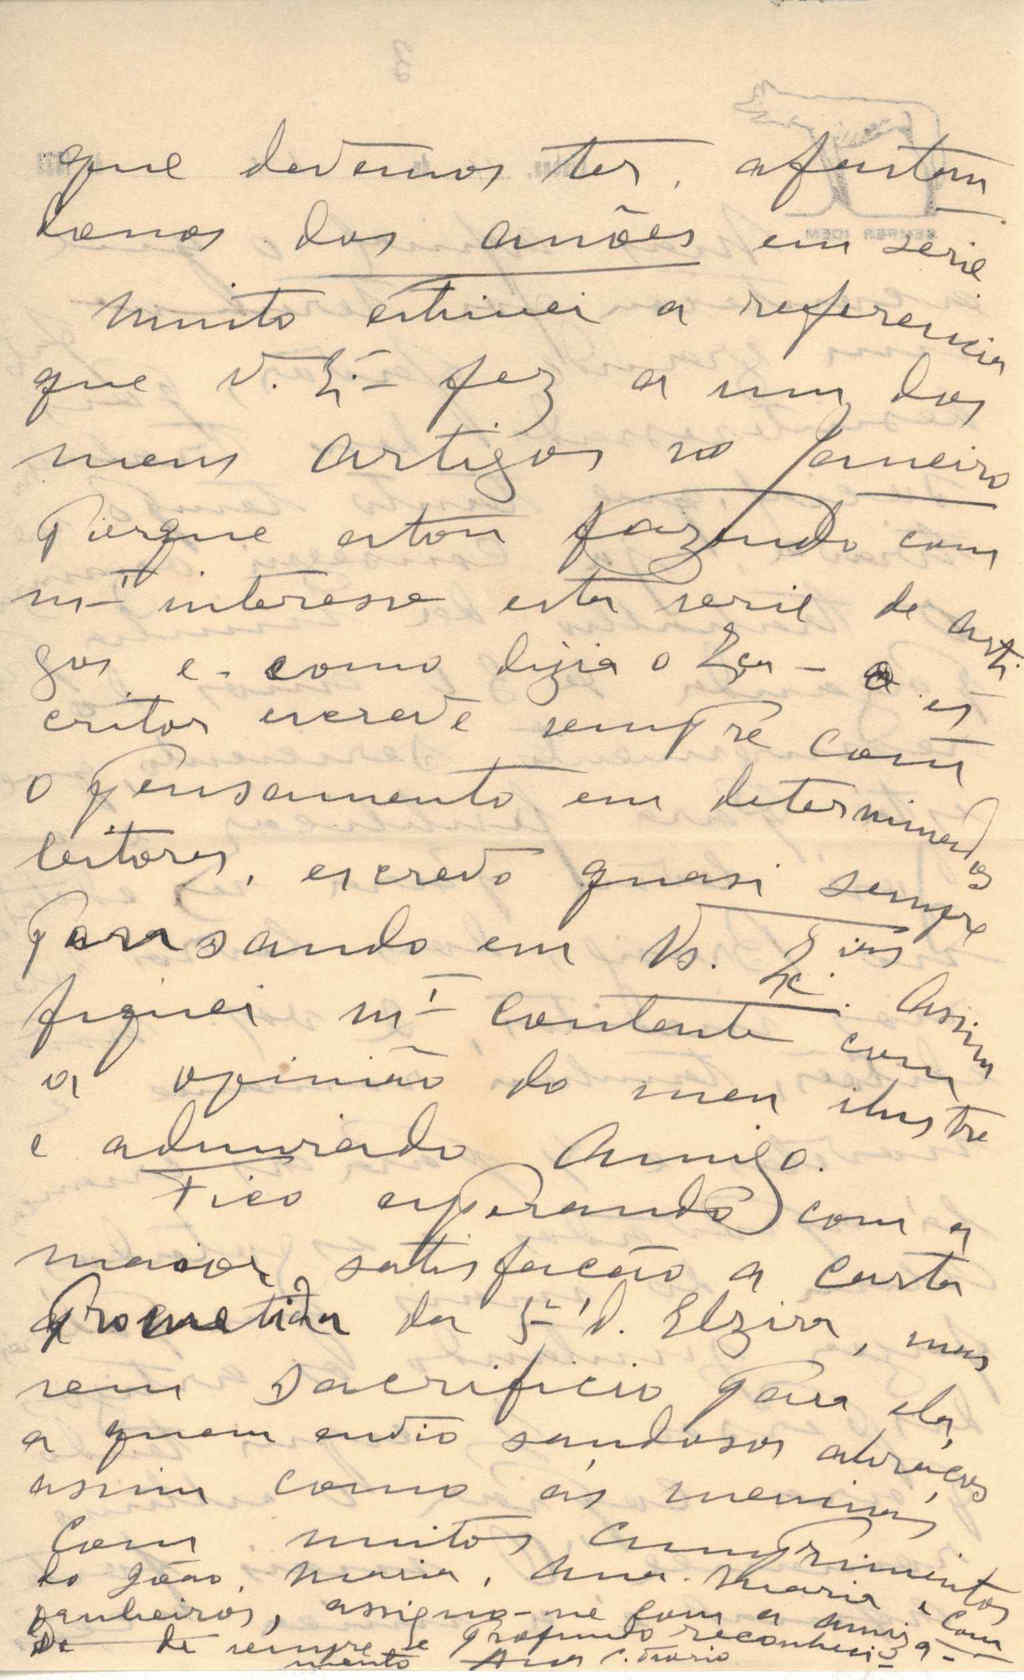 que devemos ter, afastan
donos dos anões em série
Muito estimei a referencia
que V. Ex.ª fez a um dos
meus artigos no Janeiro
Porque estou fazendo com
mt.º interesse esta serie de arti
gos e - como dizia o Eça - o es
critor escreve sempre com
o pensamento em determinados
leitores, escrevo quasi sempre
pensando em Vs. Ex.ias Assim
fiquei mt.º contente com
a opinião do meu ilustre
e admirado Amigo.
Fico esperando com a
maior satisfação a carta
prometida da Sr.ª D. Elzira, mas
sem sacrificio para ela,
a quem envio saudosos abraços
assim como ás meninas
Com muitos cumprimentos
do João, Maria, Ana Maria e Com
panheiros, assigno-me com a amiza-
de de sempre e profundo reconheci-
mento Ana C. Osorio
SEMPER IDEM